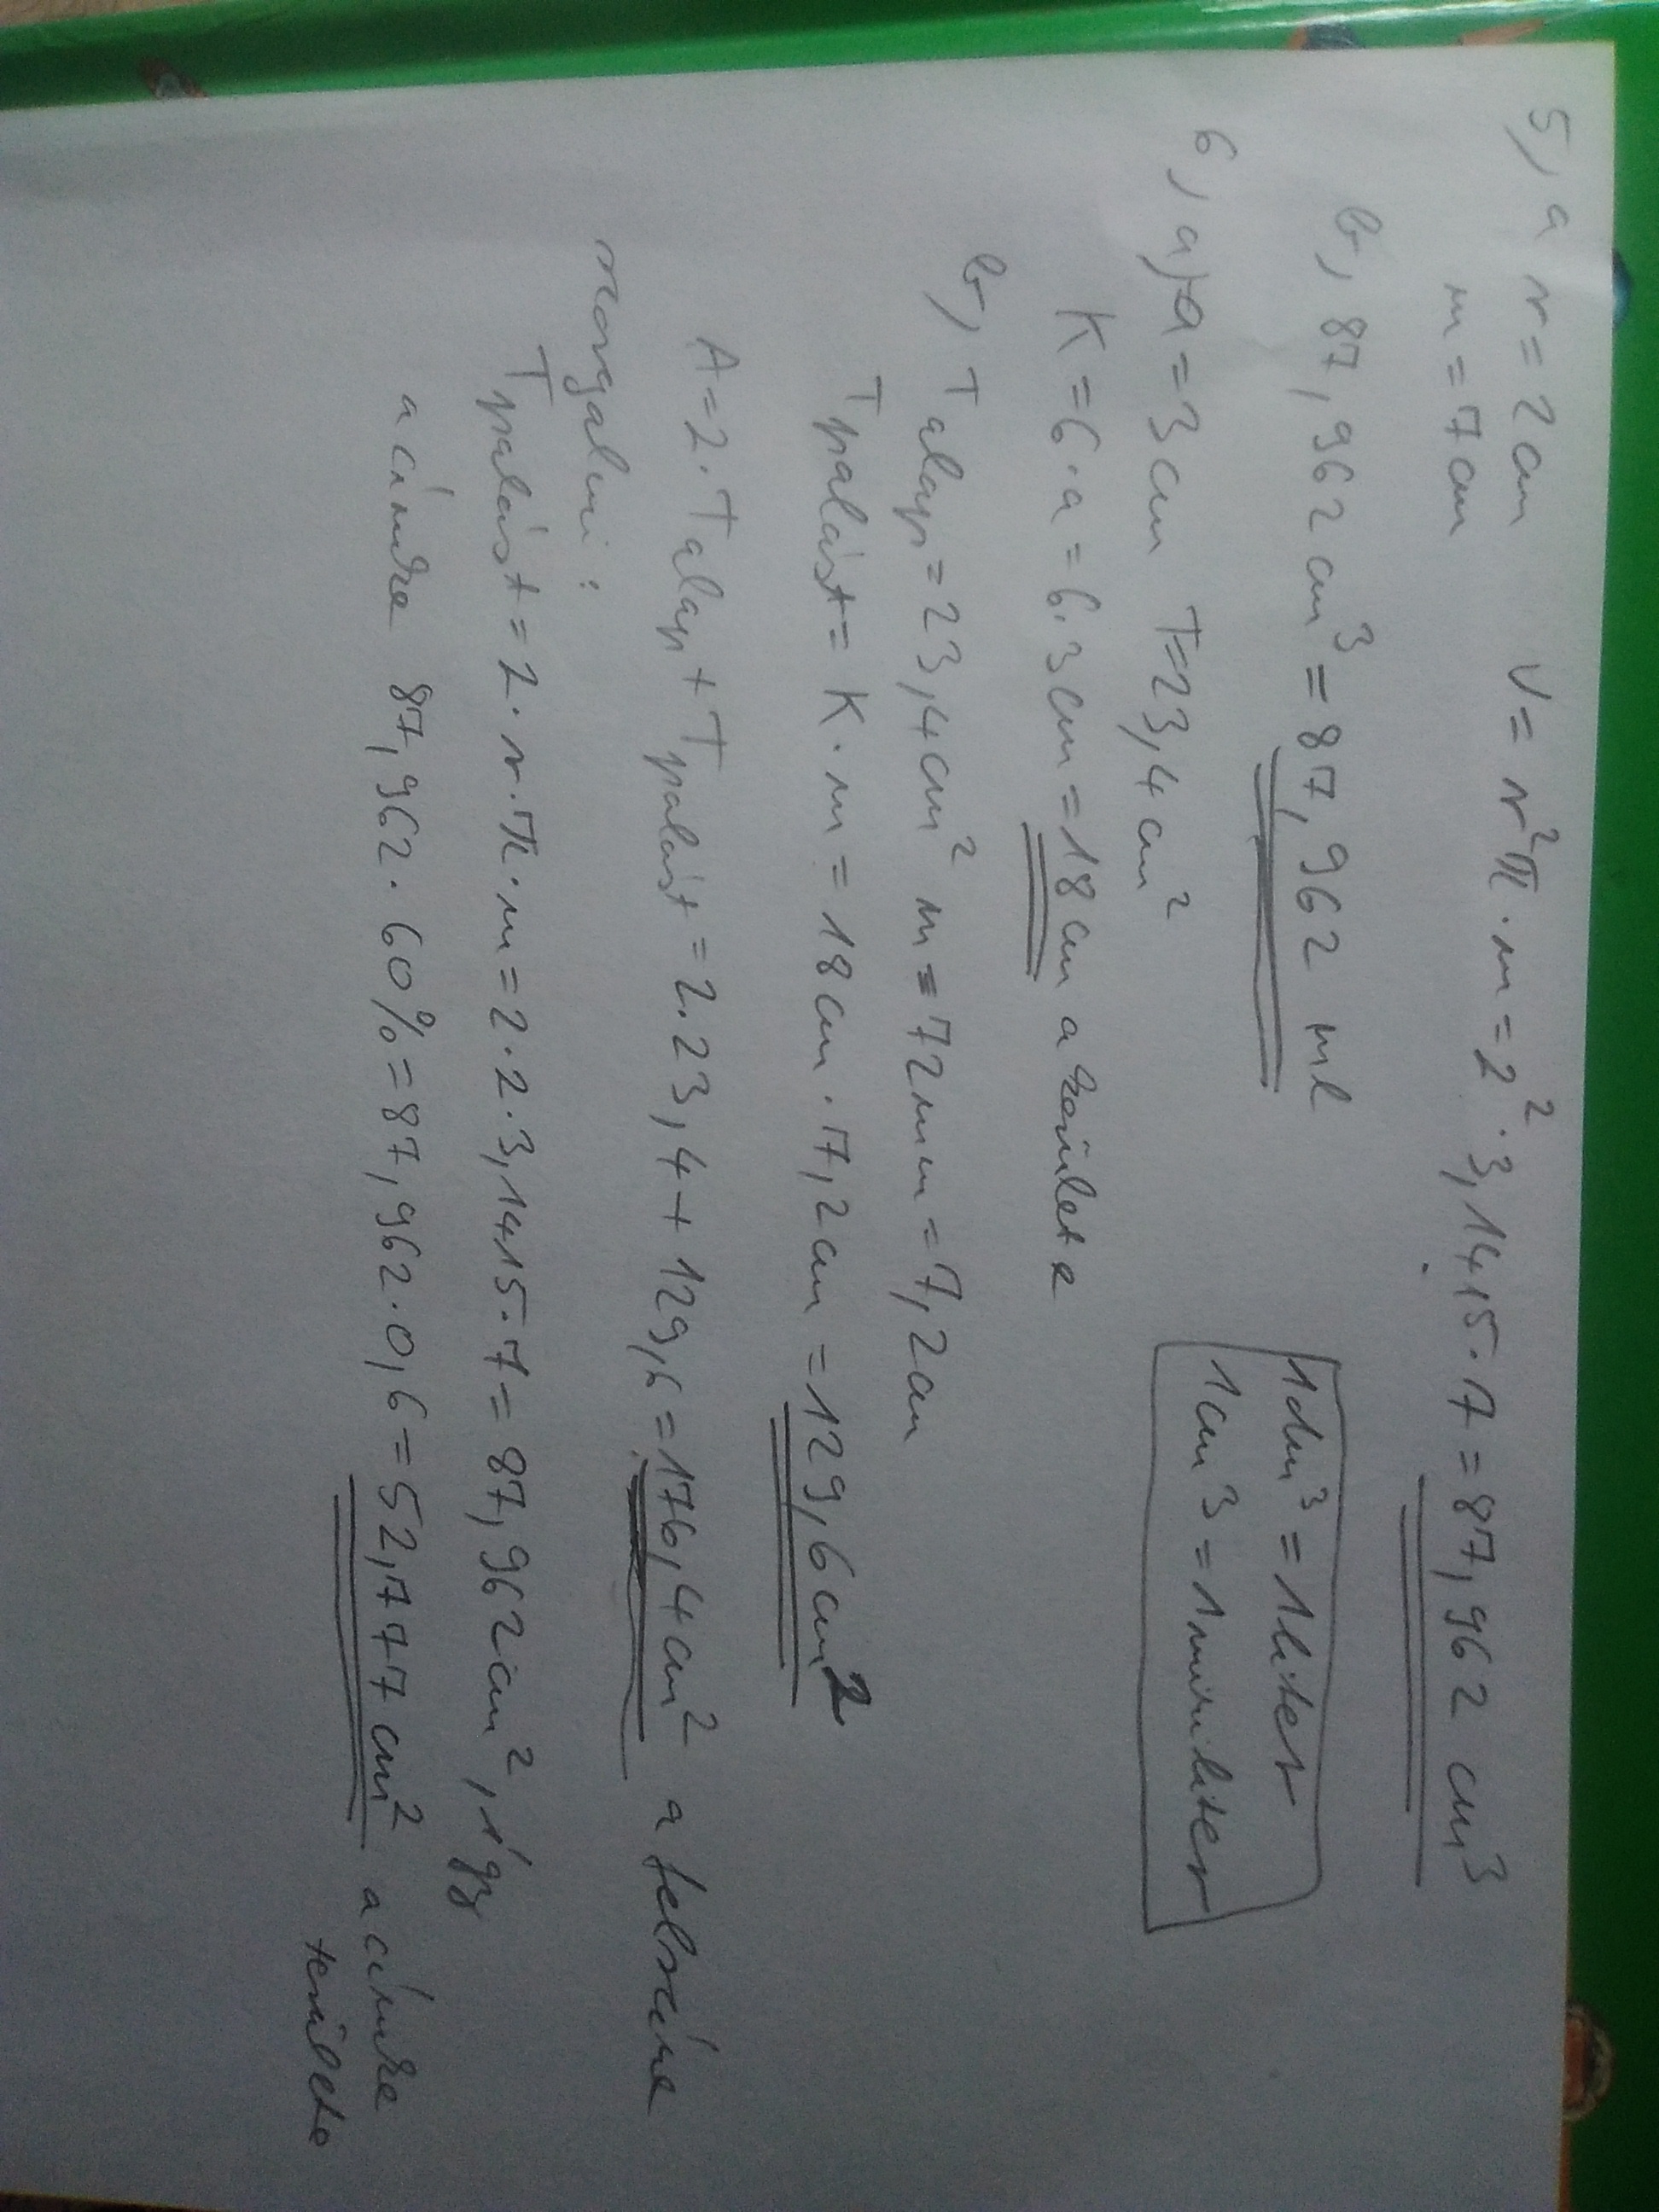 5, a r = 2 cm V = r²π · m = 2² · 3,1415 · 7 = 87,962 cm³
m = 7 cm
b, 87,962 cm³ = 87,962 ml
1 dm³ = 1 liter
1 cm³ = 1 mililiter
6, a, a = 3 cm T = 23,4 cm²
K = 6 · a = 6 · 3 cm = 18 cm a kerülete
b, T alap = 23,4 cm² m = 72 mm = 7,2 cm
T palást = K · m = 18 cm · 7,2 cm = 129,6 cm²
A = 2 · T alap + T palást = 2 · 23,4 + 129,6 = 176,4 cm² a felszíne
szorgalmi :
T palást = 2 · r · π · m = 2 · 2 · 3,1415 · 7 = 87,962 cm², így
a címke 87,962 · 60% = 87,962 · 0,6 = 52,777 cm² a címke
területe